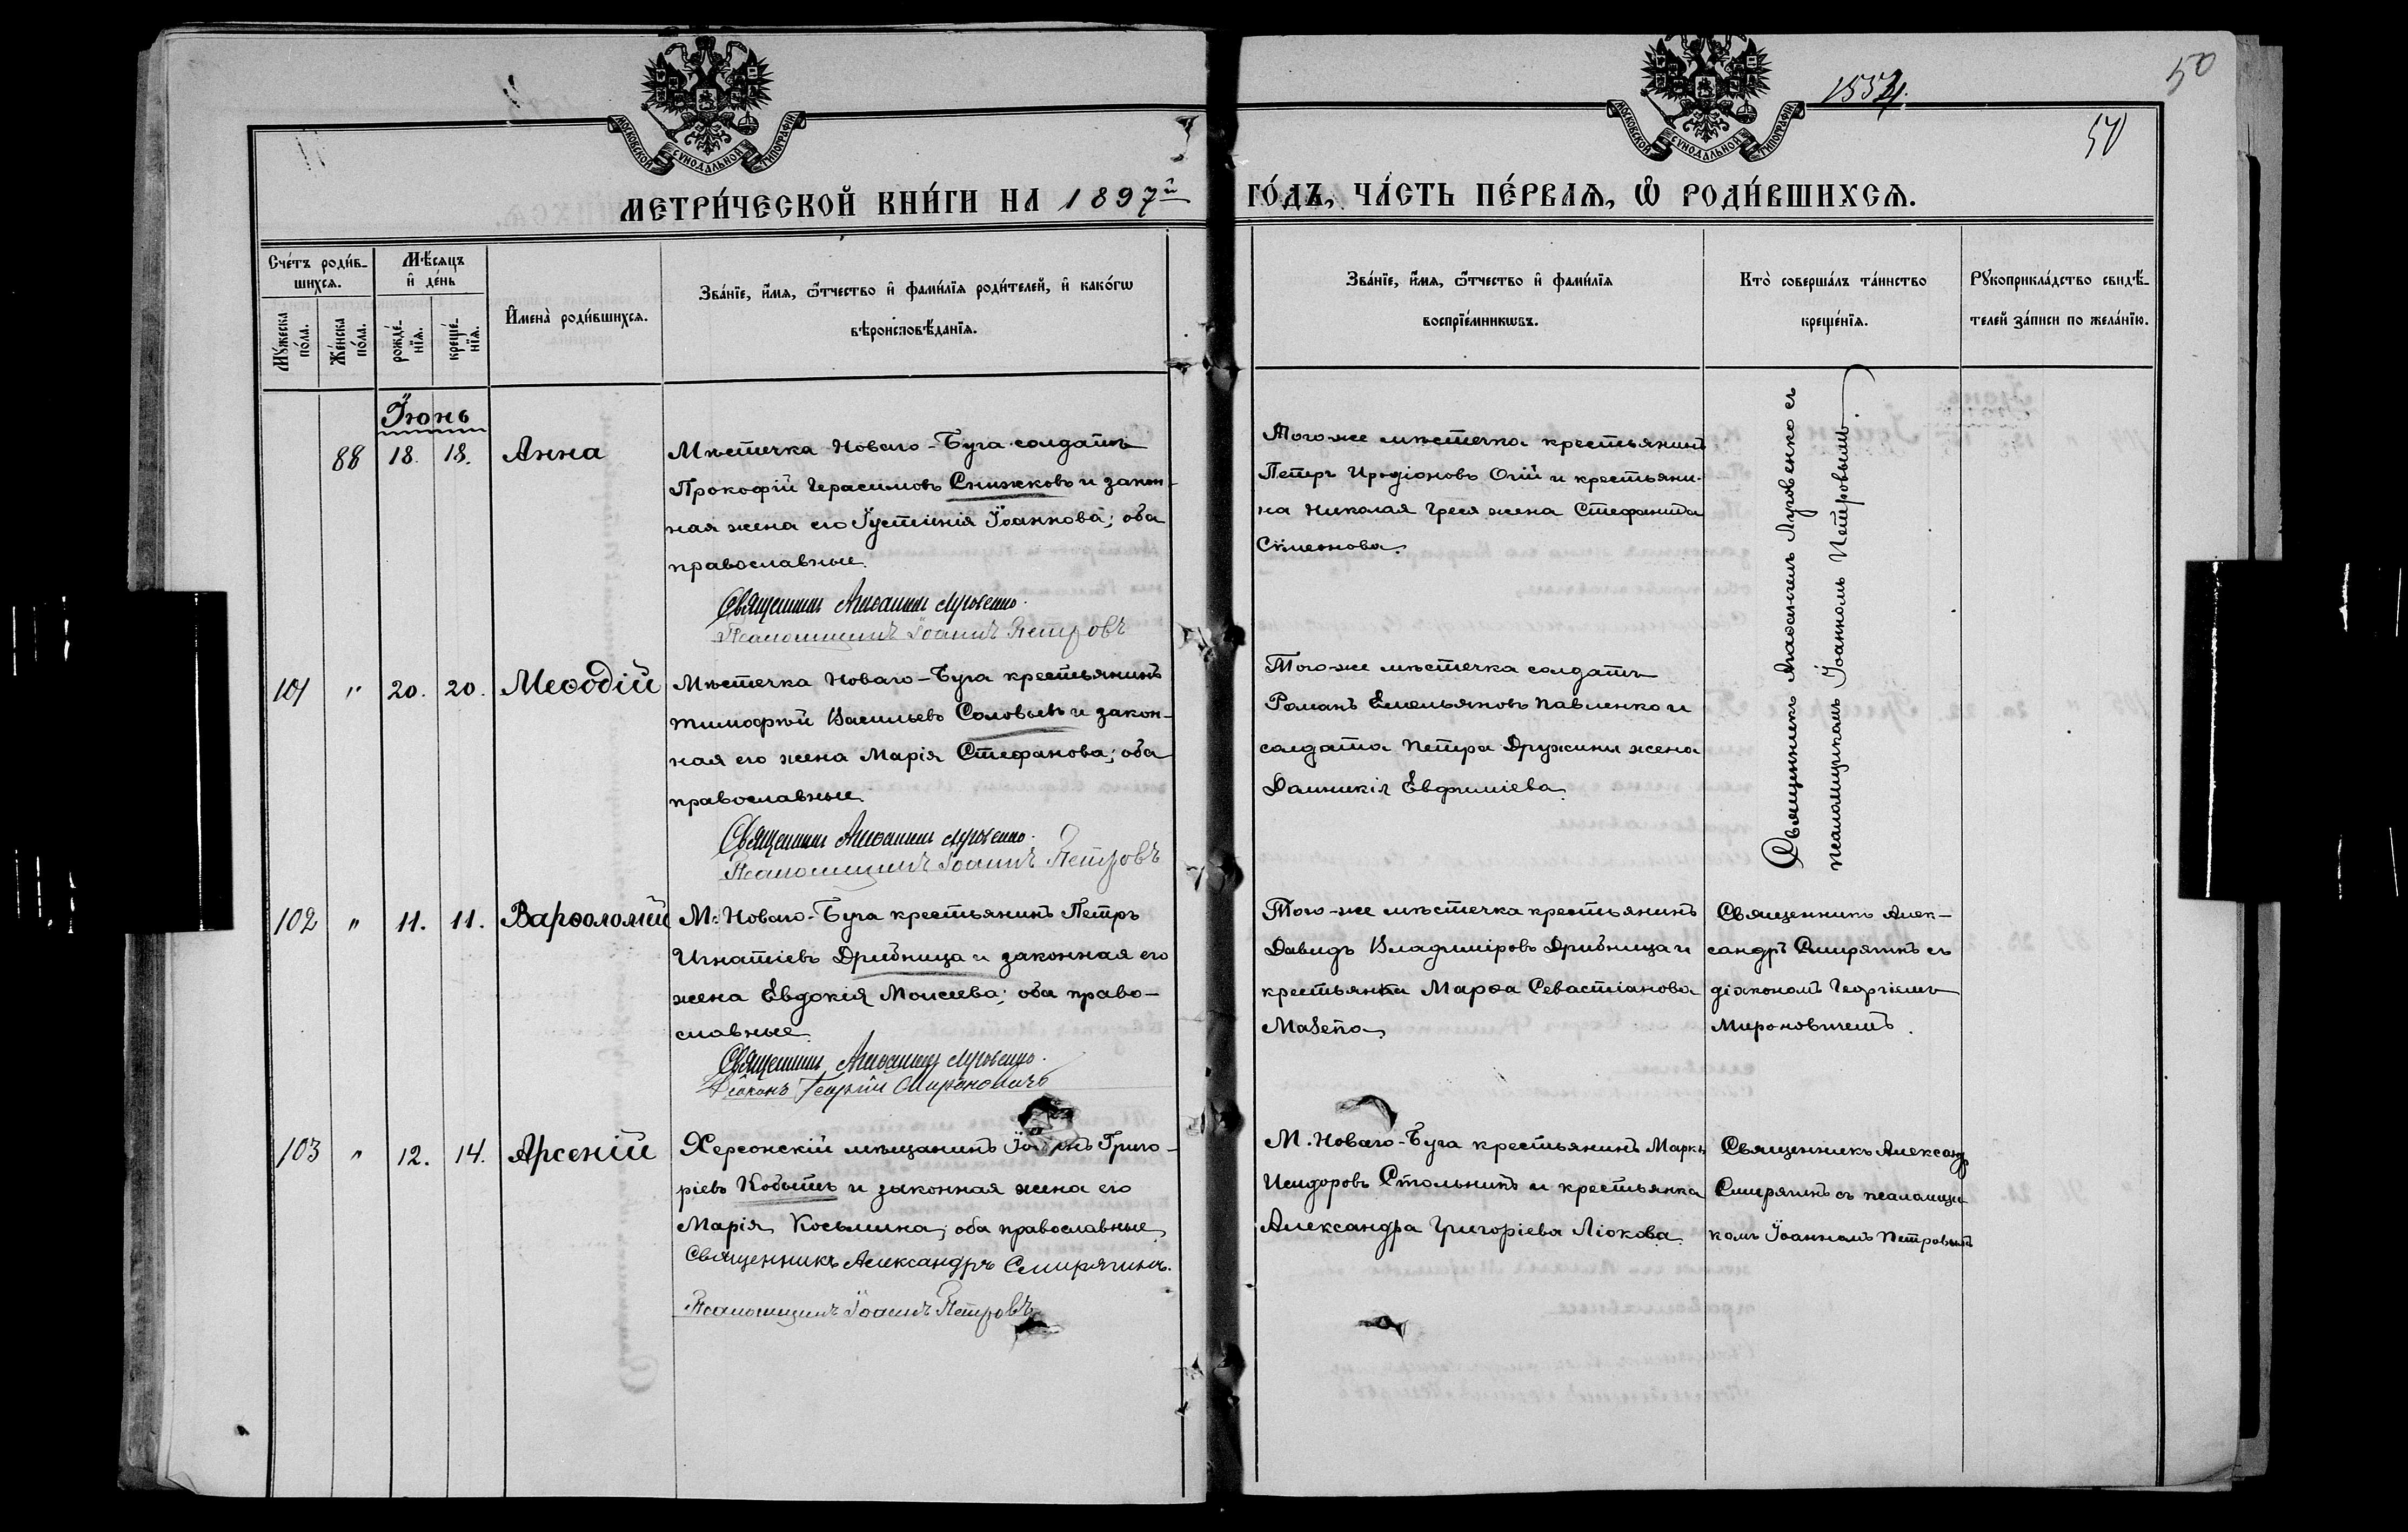 50
1554.
50
МОСКОВСКОЙ СѴНОДАЛЬНОЙ ТИПОГРАФІИ
МОСКОВСКОЙ СѴНОДАЛЬНОЙ ТИПОГРАФІИ
МЕТРИ́ЧЕСКОЙ КНИ́ГИ НА 1897й ГО́ДЪ, ЧА́СТЬ ПЕ́РВАѦ, Ѡ҆ РОДИ́ВШИХСѦ.
Сче́тъ роди́в-
шихсѧ.
Мѣ́сѧцъ
и҆ де́нь
Мꙋ́жеска
по́ла.
Же́нска
по́ла.
рожде́-
нїѧ.
креще́-
нїѧ.
И҆мена̀ роди́вшихсѧ.
Зва́нїе, и҆́мѧ, ѻ҆́тчество и҆ фами́лїѧ роди́телей, и҆ како́гѡ
вѣроисповѣ́данїѧ.
Зва́нїе, и҆́мѧ, ѻ҆́тчество и҆ фами́лїѧ
воспрїе́мникѡвъ.
Кто̀ соверша́лъ та́инство
креще́нїѧ.
Рꙋкоприкла́дство свидѣ́-
телей за́писи по жела́нїю.
Іюнь
88 18. 18. Анна
Мѣстечка Новаго-Буга солдатъ
Прокофій Герасимовъ Снижковъ и закон-
ная жена его Іустинія Іоаннова; оба
православные.
Священникъ Афанасій Луговенко.
Псаломщикъ Іоаннъ Петровъ
Того-же мѣстечка крестьянинъ
Петръ Иродіоновъ Огій и крестьяни-
на Николая жена Стефанида
Симеонова.
Священникъ Луговенко съ
псаломщикомъ Іоанномъ Петровымъ.
101 " 20. 20. Меѳодій
Мѣстечка Новаго-Буга крестьянинъ
Тимофей Васильевъ Соловьевъ и закон-
ная его жена Марія Стефанова; оба
православные
Священникъ Луговенко.
Псаломщикъ Іоаннъ Петровъ
Того-же мѣстечка солдатъ
Романъ Емельяновъ Павленко и
солдата Петра Дружины жена
Домникія Евфиміева.
102 " 11. 11. Варѳоломій
М. Новаго-Буга крестьянинъ Петръ
Игнатіевъ Дрибница и законная его
жена Евдокія Моисеева; оба право-
славные.
Священникъ Луговенко.
Діаконъ Георгій Мироновичъ
Того-же мѣстечка крестьянинъ
Давидъ Владиміровъ Дрибница и
крестьянка Марѳа Севастіанова
Священникъ Алек-
сандръ Смирягинъ съ
діакономъ Георгіемъ
Мироновичемъ.
103 " 12. 14. Арсеній
Херсонскій мѣщанинъ Григо-
ріевъ Кобытъ и законная жена его
Марія Косьмина; оба православные.
Священникъ Александръ Смирягинъ.
Псаломщикъ Іоаннъ Петровъ
М. Новаго-Буга крестьянинъ Маркъ
Исидоровъ Стольникъ и крестьянка
Александра Григоріева Ліокова.
Священникъ Александръ
Смирягинъ съ псаломщи-
комъ Іоанномъ Петровымъ